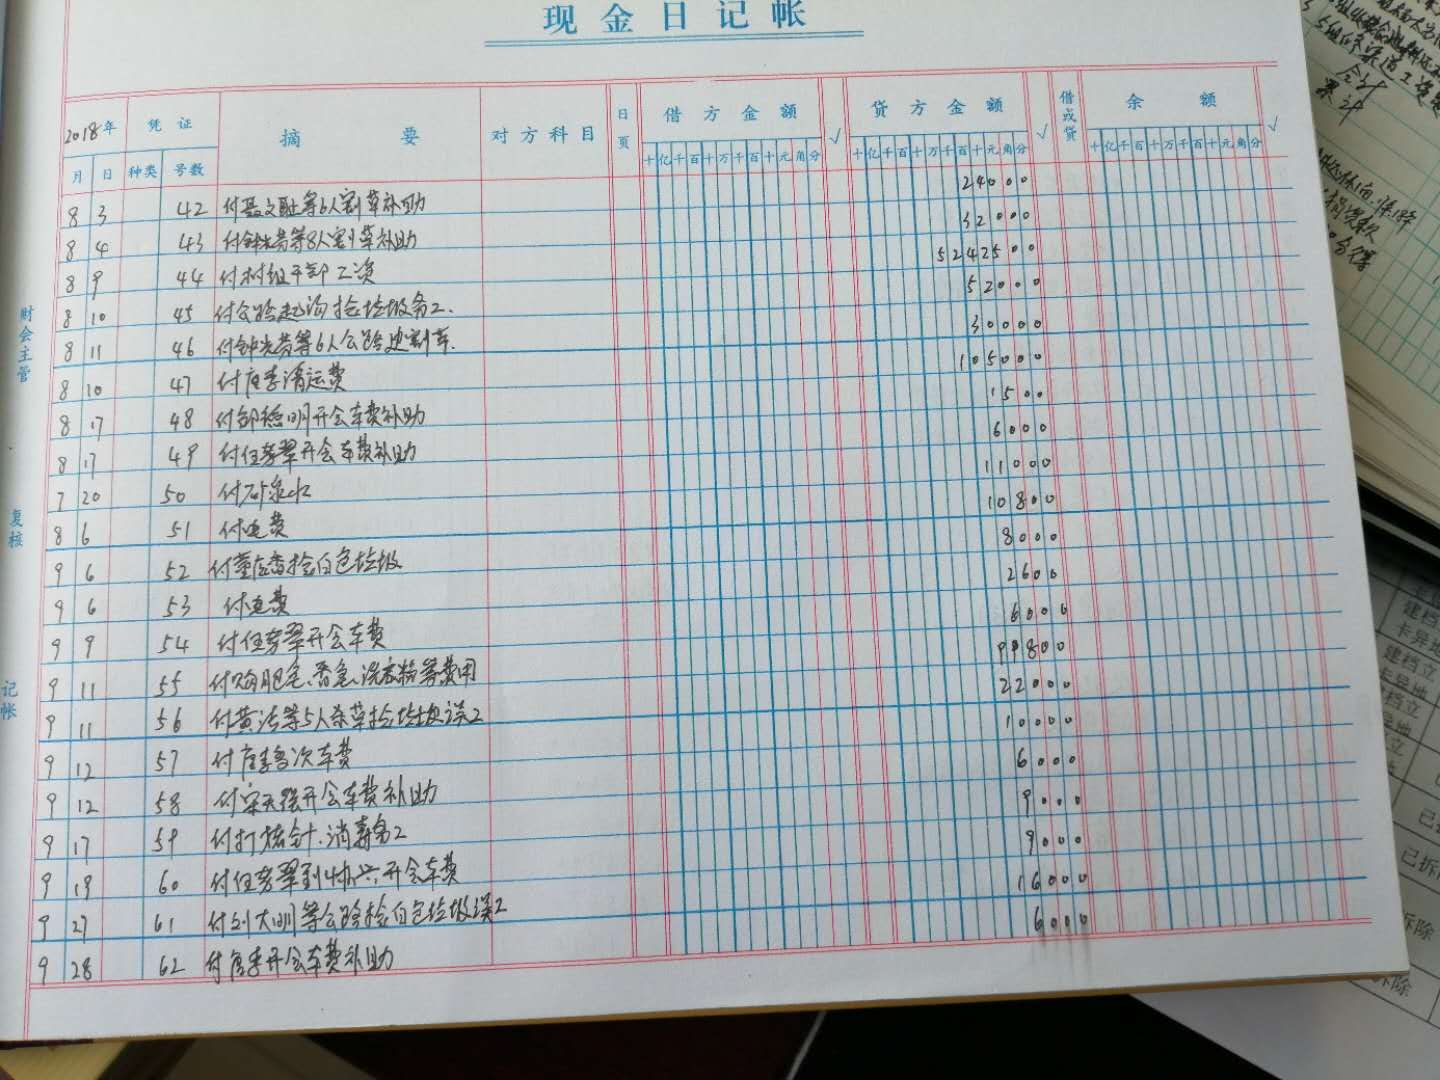 现金日记帐
2018年 凭证 摘要 对方科目 日页 借方金额 √ 贷方金额 √ 借或贷 余额 √
月 日 种类 号数 十亿千百十万千百十元角分 十亿千百十万千百十元角分 十亿千百十万千百十元角分
8 3 42 付聂文 等6人割草补助 24000
8 4 43 付钟光芳等8人割草补助 32000
8 9 44 付村组干部工资 5242500
8 10 45 付公路起沟捡垃圾务工. 52000
8 11 46 付钟光芳等6人公路边割草. 30000
8 10 47 付唐季清运费 105000
8 17 48 付邹德明开会车费补助 1500
8 17 49 付任秀翠开会车费补助 6000
7 20 50 付矿泉水 11000
8 6 51 付电费 10800
9 6 52 付董 香捡白色垃圾 8000
9 6 53 付电费 2600
9 9 54 付任秀翠开会车费 6000
9 11 55 付购肥皂、香皂、洗衣粉等费用 99800
9 11 56 付黄法等5人杀草捡垃圾误工 22000
9 12 57 付唐季多次车费 10000
9 12 58 付宋天强开会车费补助 6000
9 17 59 付打 针.消毒务工 9000
9 19 60 付任秀翠到 兴开会车费 9000
9 27 61 付刘大明等公路捡白色垃圾误工 16000
9 28 62 付唐季开会车费补助 6000
财会主管
复核
记帐
会计
建档
卡异地
建档立
卡异地
档立
异地
已拆
拆除
拆除